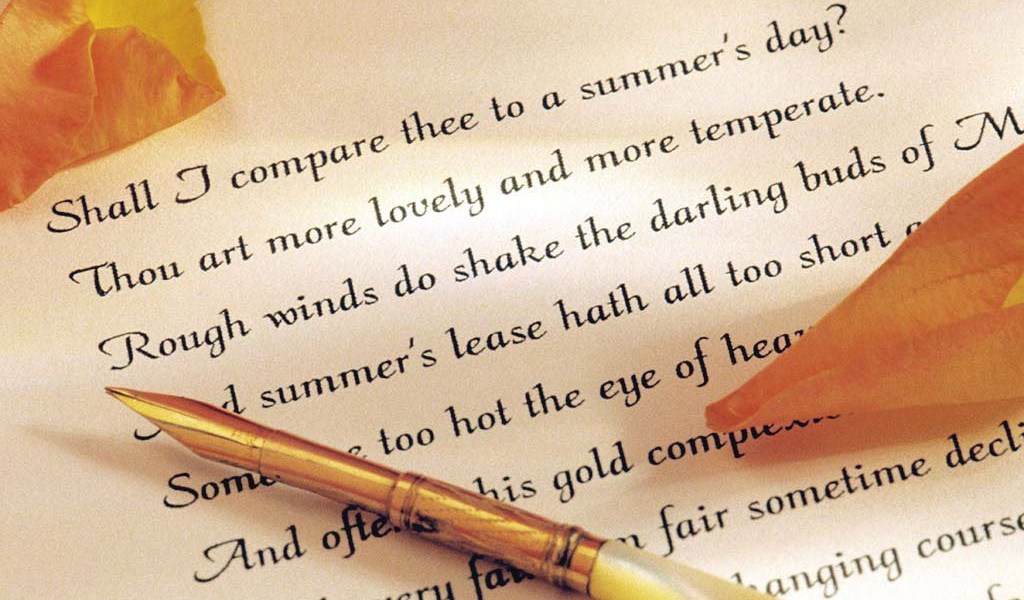 Shall I compare thee to a summer's day?
Thou art more lovely and more temperate.
Rough winds do shake the darling buds of M
d summer's lease hath all too short
Som e too hot the eye of hea
And ofte his gold comple
very fa fair sometime decli
hanging course